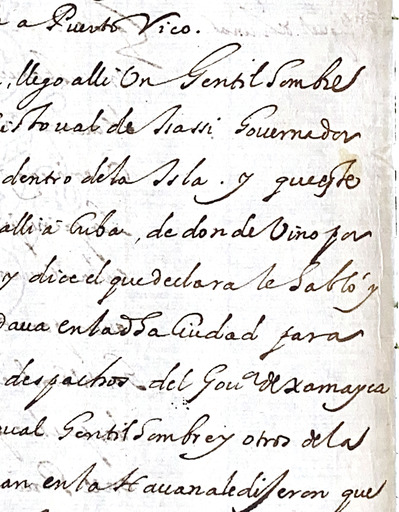 a Puerto Rico.
, llego alli Un Gentil Hombre
istoual de Isassi Gouernador
dentro dela Isla . y queste
alli â Cuba , de donde Vino por
y dice el que declara le habló y
daua en la dha Ciudad para
despachos del Gouor de Xamayca
ual Gentil Hombre y otros de la
an en la Hauana le dijeron que